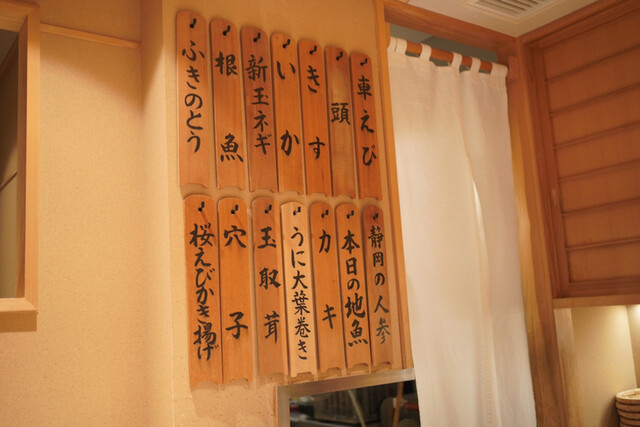 車えび
頭
きす
いか
新玉ネギ
根魚
ふきのとう
静岡の人参
本日の地魚
カキ
うに大葉巻き
玉取茸
穴子
桜えびかき揚げ